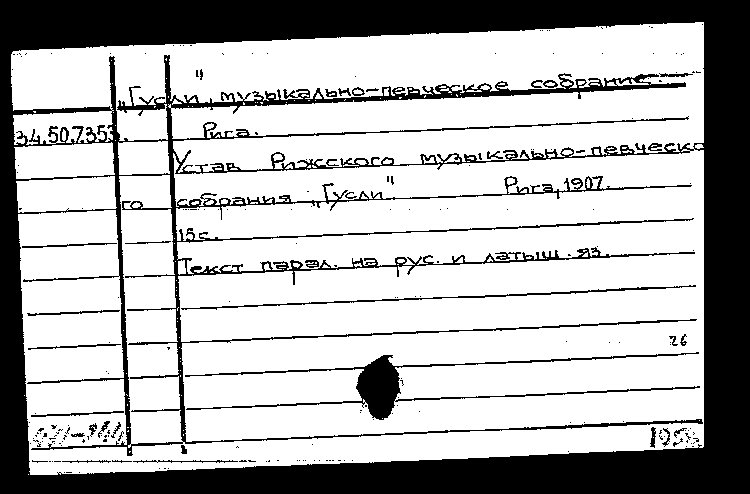 „Гусли", музыкально-певческое собрание.
34.50.7353. Рига.
Устав Рижского музыкально-певческо
го собрания „Гусли" Рига, 1907.
15 с.
Текст парал. на рус. и латыш. яз.
26